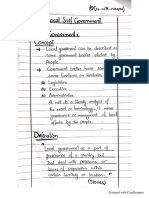 Local Self Government
Government :
Concept
→ Local government can be described as
some government bodies elected
by people.
→ Government bodies have some
some functions or territories.
a) Legislature
b) Executive
c) Administrative
of the
word or terminology, it
governance or management of local
affairs by the people.
Definition
Local government as a part of
governance of a country that
but deal with problems, or
issues of population within
certain territory or location.
(Stones)
Scanned with CamScanner